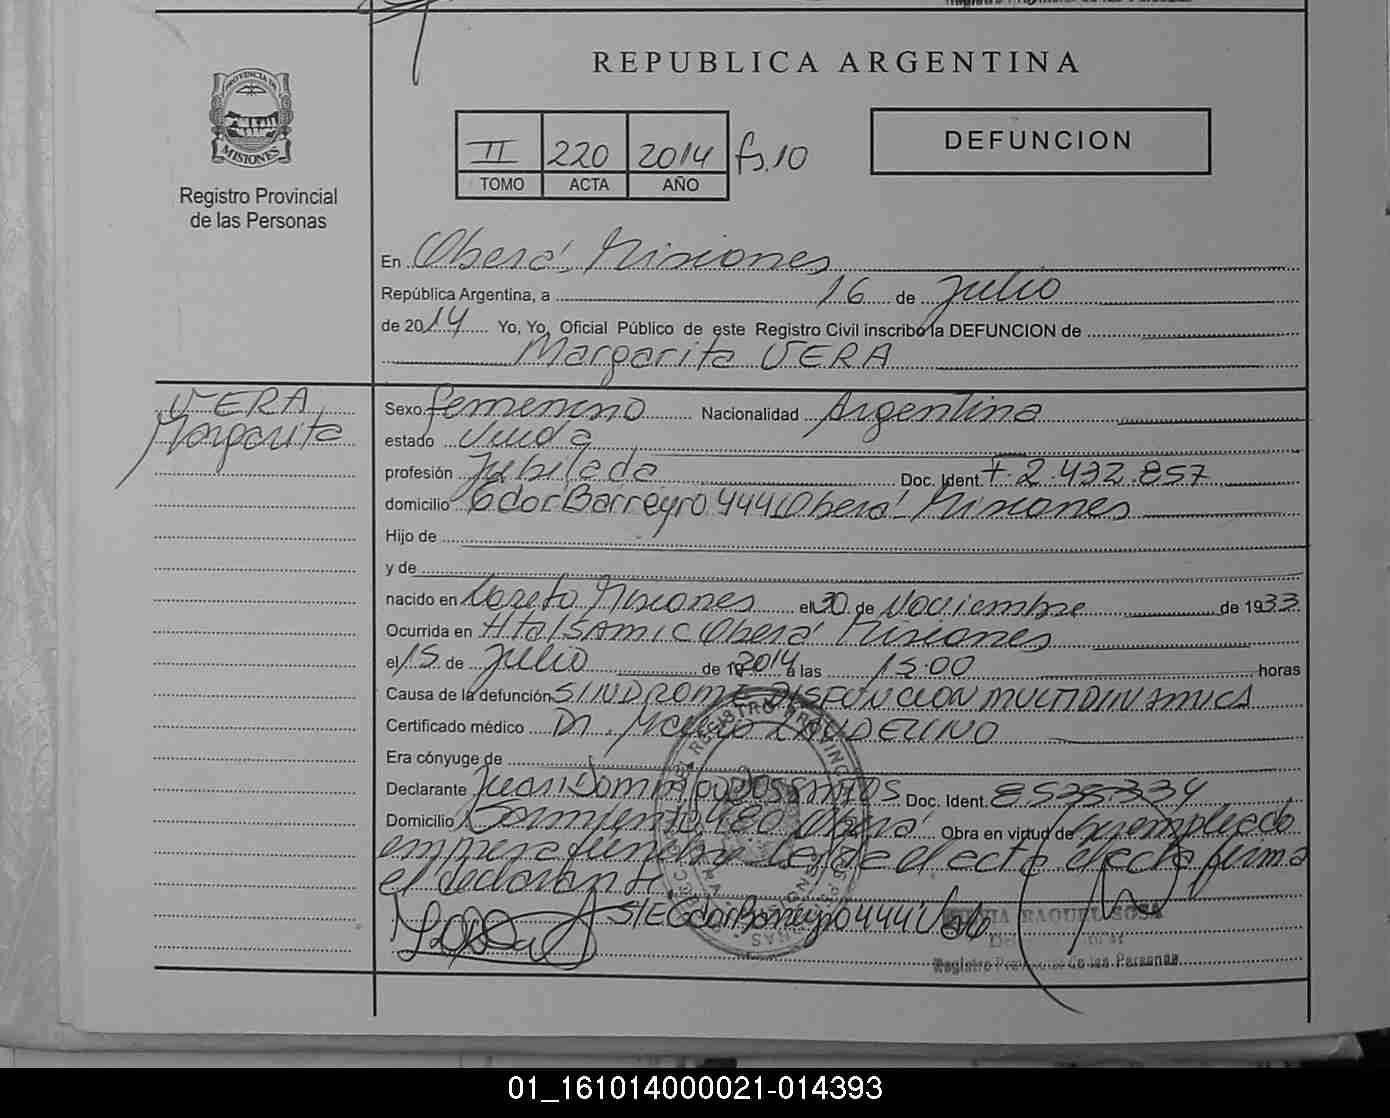 REPUBLICA ARGENTINA
PROVINCIA DE
MISIONES
Registro Provincial
de las Personas
II 220 2014 fs.10
TOMO ACTA AÑO
DEFUNCION
En Oberá Misiones
República Argentina, a 16 de Julio
de 2014 Yo, Yo, Oficial Público de este Registro Civil inscribo la DEFUNCION de
Margarita VERA
VERA,
Margarita
Sexo femenino Nacionalidad Argentina
estado Viuda
profesión Jubilada Doc. Ident. F 2.432.857
domicilio Gdor Barreyro 444 Oberá Misiones
Hijo de
y de
nacido en Loreto Misiones el 30 de Noviembre de 1933
Ocurrida en Htal SAMIC Oberá Misiones
el 15 de Julio de 19 2014 a las 15.00 horas
Causa de la defunción SINDROME DISFUNCION MULTIDINAMICA
Certificado médico Dr.
Era cónyuge de
Declarante Juan Domingo DOSSANTOS Doc. Ident.
Domicilio Sarmiento 480 Oberá Obra en virtud de ser empleado
empresa funebre Leida el acta
el declarante
S/E Gdor Barreyro 444 Vale
RAQUEL SOSA
Registro Provincial de las Personas
01_161014000021-014393